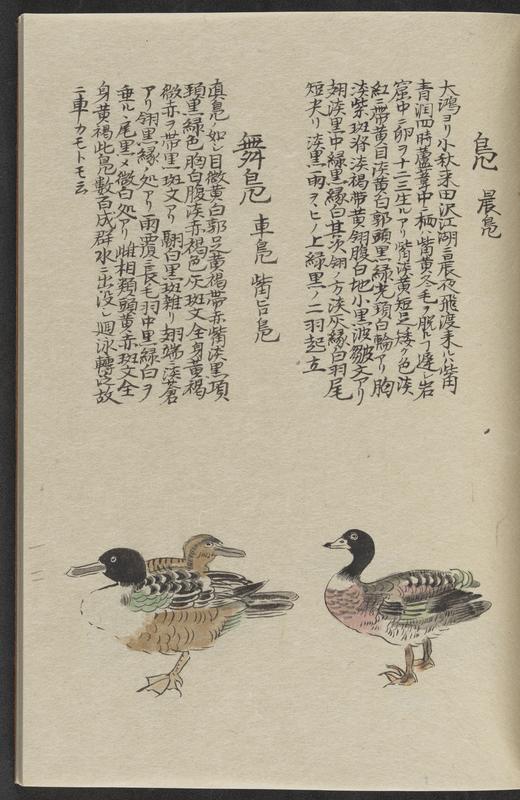 鳧 晨鳧
大鴻ヨリ小秋来田沢江湖ニ晨夜飛渡来ル
青潤四時蘆葦中ニ栖ハ觜黄冬毛ヲ脱シ
窟中ニ卵ヲ十二三生ルアリ觜淡黄短足矮ク色淡
紅ニ帯黄目淡黄白郭頭黒緑光頸白輪アリ胸
淡紫斑 淡褐帯黄翎腹白地小黒波皺文アリ
翅淡黒中緑黒縁白其次翎ノ方淡灰縁白羽尾
短尖リ淡黒両ヲヒノ上緑黒ノ二羽起立
舞鳧 車鳧 觜皆鳧
真鳧ノ如シ目微黄白郭足黄褐帯赤觜淡黒項
頚黒緑色胸白腹淡赤褐色灰斑文全身黄褐
微赤ヲ帯黒斑文アリ 白黒斑雑リ翅端ニ淡蒼
アリ翎黒縁ノ処アリ両覆ニ長毛羽中黒緑白ヲ
垂ル尾黒メ微白処アリ雌相類頭黄赤斑文全
身黄褐此鳧数百成群水ニ出没シ廻泳轉 故
ニ車カモトモ云